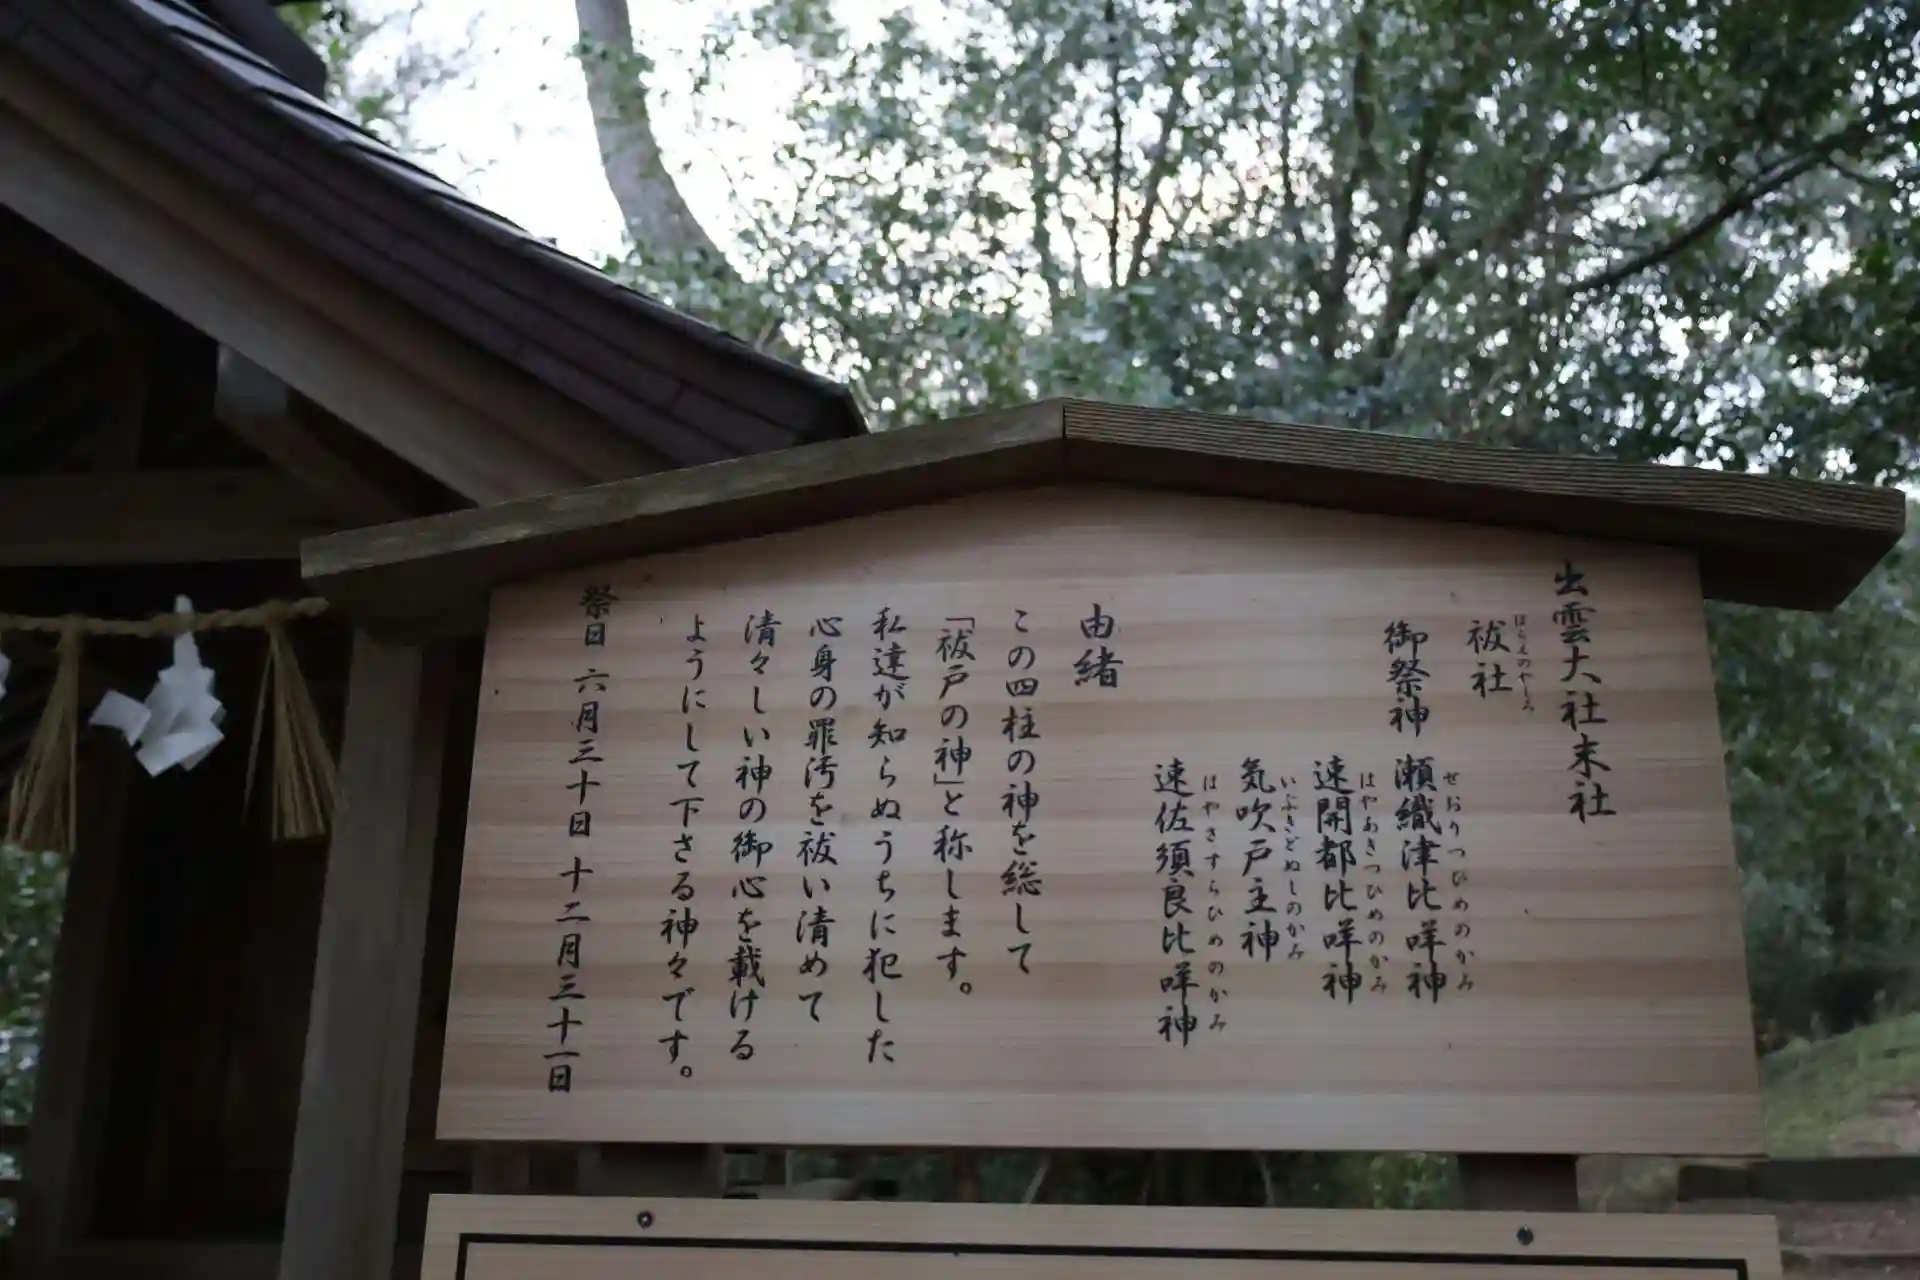 出雲大社末社
祓社
はらえのやしろ
御祭神 瀬織津比咩神
せおりつひめのかみ
速開都比咩神
はやあきつひめのかみ
気吹戸主神
いぶきどぬしのかみ
速佐須良比咩神
はやさすらひめのかみ
由緒
この四柱の神を総して
「祓戸の神」と称します。
私達が知らぬうちに犯した
心身の罪汚を祓い清めて
清々しい神の御心を載ける
ようにして下さる神々です。
祭日 六月三十日 十二月三十一日